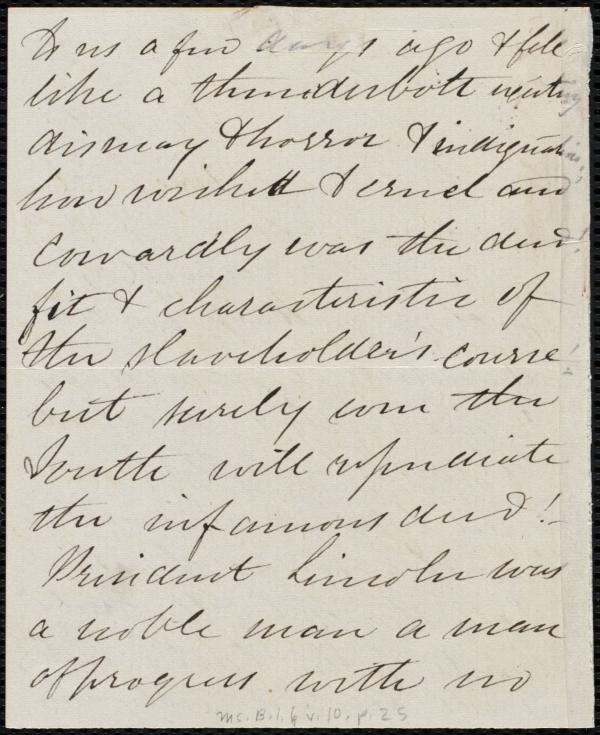 to us a few days ago & fell
like a thunderbolt exciting
dismay & horror & indignation
how wicked & cruel and
cowardly was the deed
fit & characteristic of
the slaveholder's course
but surely even the
South will repudiate
the infamous deed! -
President Lincoln was
a noble man a man
of progress with no
Ms. B. 1. 6 v. 10. p. 25